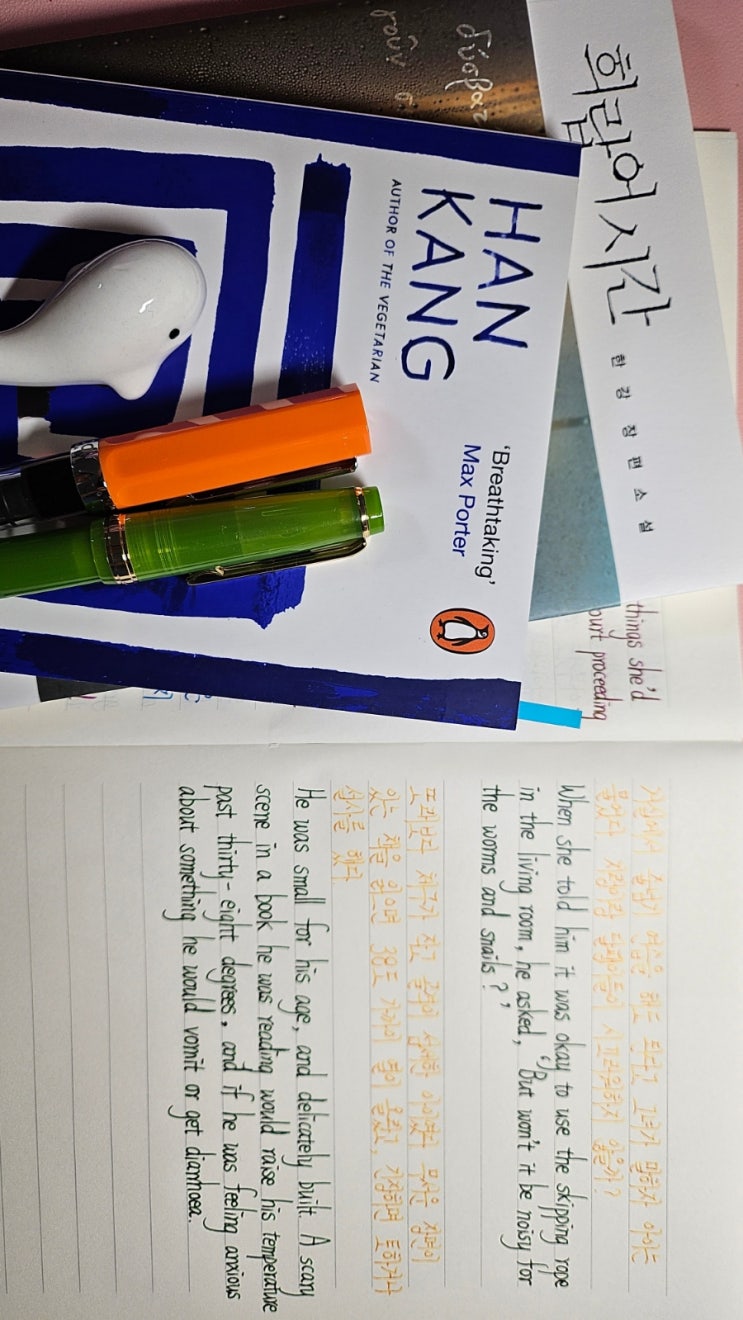 희랍어 시간
한 강 장 편 소 설
HAN
KANG
AUTHOR OF THE VEGETARIAN
'Breathtaking'
Max Porter
things she'd
ourt proceeding
거실에서 줄넘기 연습을 해도 된다고 그녀가 말하자 아이는
물었다. 지렁이랑 달팽이들이 시끄러워하지 않을까?
When she told him it was okay to use the skipping rope
in the living room, he asked, 'But won't it be noisy for
the worms and snails?'
또래보다 체구가 작고 골격이 섬세한 아이였다. 무서운 장면이
있는 책을 읽으면 38도 가까이 열이 올랐고, 긴장하면 토하거나
설사를 했다.
He was small for his age, and delicately built. A scary
scene in a book he was reading would raise his temperature
past thirty-eight degrees, and if he was feeling anxious
about something he would vomit or get diarrhoea.